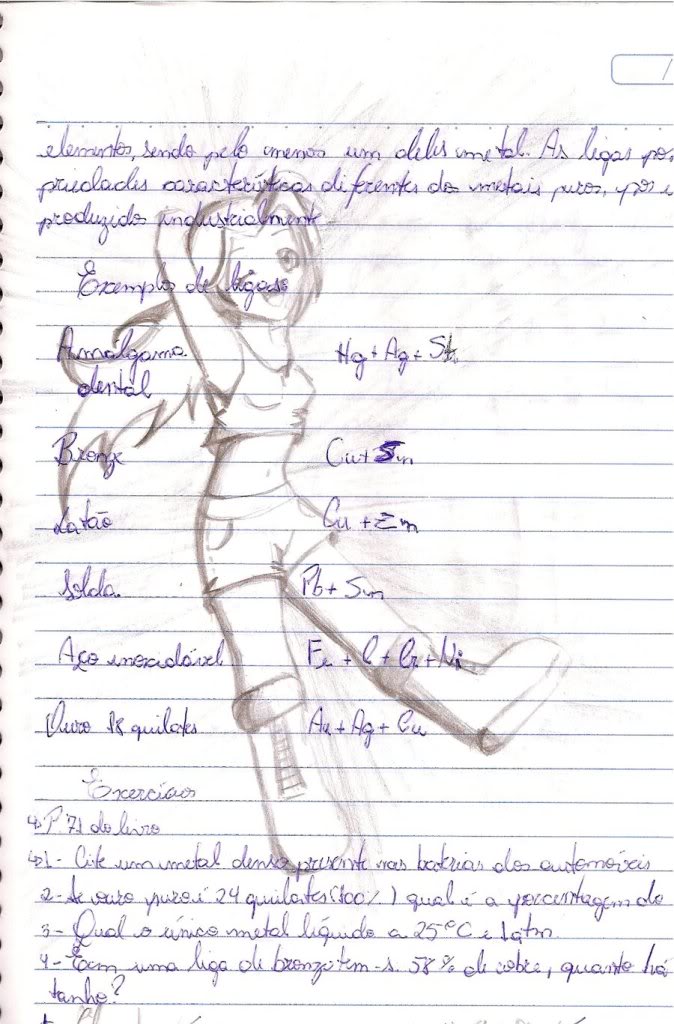 elementos, sendo pelo menos um deles metal. As ligas pos
priedades características diferentes dos metais puros, pois e
produzido industrialmente
Exemplos de ligas
Amálgama dental Hg + Ag + Sn
Bronze Cu + Sn
Latão Cu + Zn
Solda. Pb + Sn
Aço inoxidável Fe + C + Cr + Ni
Ouro 18 quilates Au + Ag + Cu
Exercícios
P. 71 do livro
1- Cite um metal denso presente nas baterias dos automóveis
2- Se ouro puro é 24 quilates (100%) qual é a porcentagem do
3- Qual o único metal líquido a 25°C e 1atm
4- Em uma liga de bronze tem-s. 58% de cobre, quanto há
tanho?